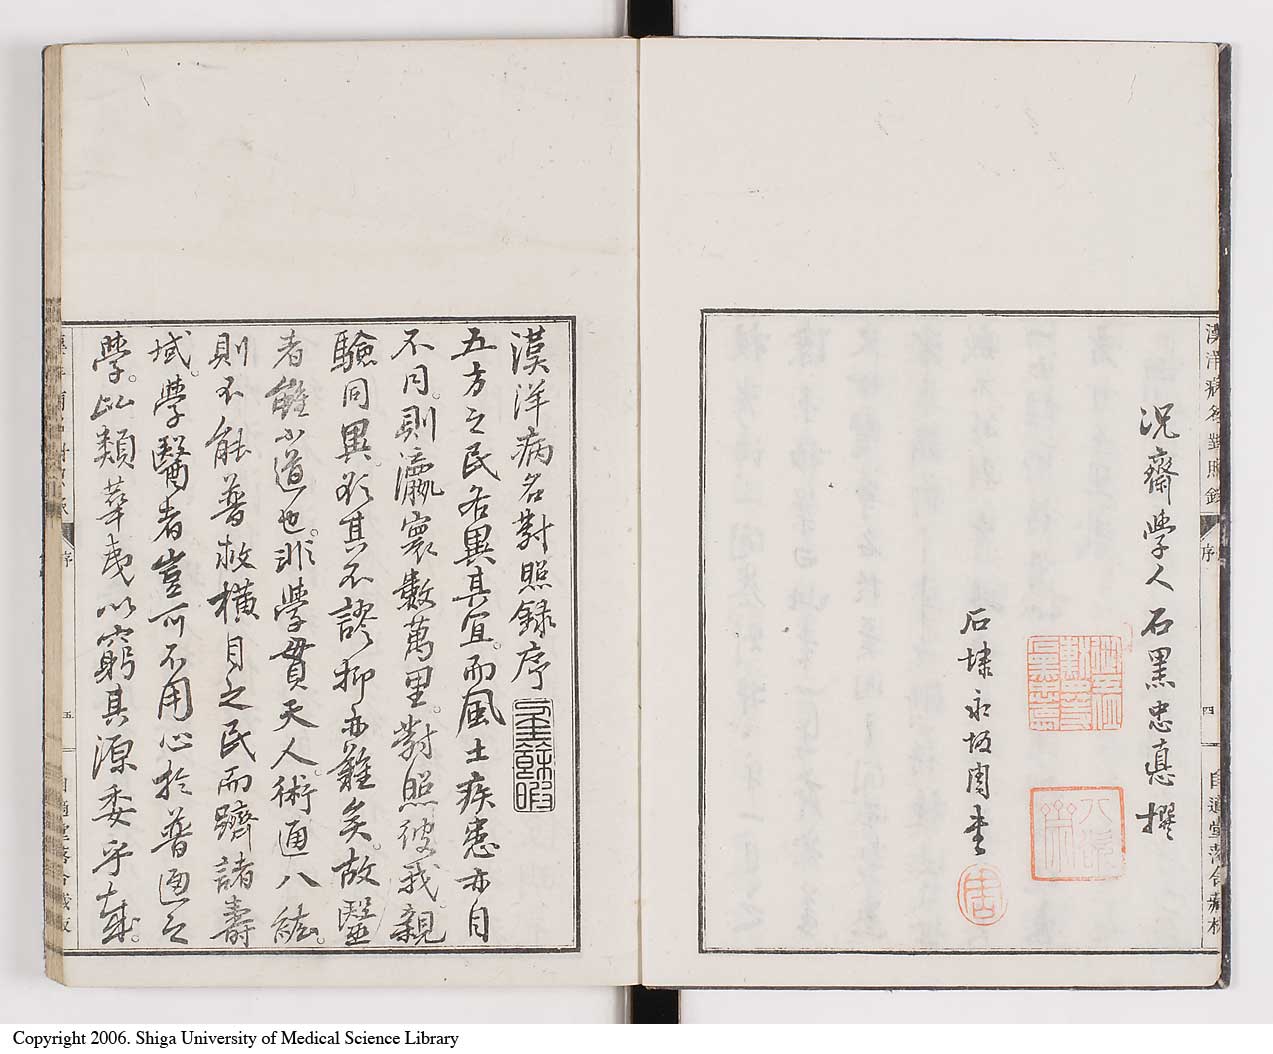 漢洋病名對照錄
序
四
自適堂落合藏梓
況齋學人石黒忠悳撰
石埭永坂周書
漢洋病名對照録序
五方之民各異其宜而風土疾患亦自
不同。則瀛寰數萬里。對照彼我。親
驗同異。欲其不謬抑亦難矣。故醫
者雖小道也。非學貫天人。術通八紘。
則不能普救橫目之民而躋諸壽
域。學醫者豈可不用心於普通之
學。此類華夷以窮其源委乎哉。
序
五
Copyright 2006. Shiga University of Medical Science Library